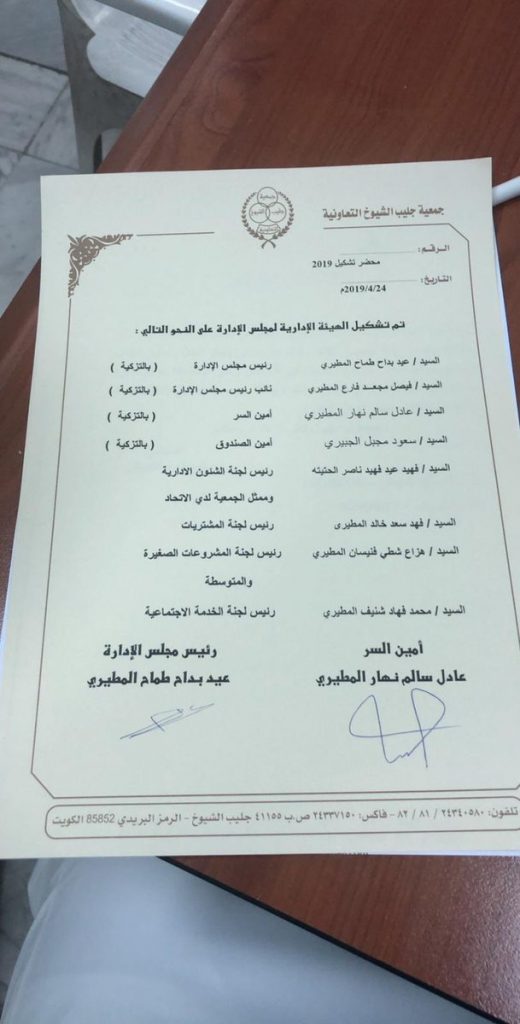 جمعية جليب الشيوخ التعاونية
الرقم:
محضر تشكيل 2019
التاريخ:
2019/4/24م
تم تشكيل الهيئة الإدارية لمجلس الإدارة على النحو التالي :
السيد / عيد بداح طماح المطيري رئيس مجلس الإدارة ( بالتزكية )
السيد / فيصل مجعد فارع المطيري نائب رئيس مجلس الإدارة ( بالتزكية )
السيد / عادل سالم نهار المطيري أمين السر ( بالتزكية )
السيد / سعود مجبل الجبيري أمين الصندوق ( بالتزكية )
السيد / فهيد عيد فهيد ناصر الحتيته رئيس لجنة الشئون الادارية
وممثل الجمعية لدي الاتحاد
السيد / فهد سعد خالد المطيرى رئيس لجنة المشتريات
السيد / هزاع شطي فنيسان المطيري رئيس لجنة المشروعات الصغيرة
والمتوسطة
السيد / محمد فهاد شنيف المطيري رئيس لجنة الخدمة الاجتماعية
أمين السر رئيس مجلس الإدارة
عادل سالم نهار المطيري عيد بداح طماح المطيري
تلفون: ٢٤٣٤٠٥٨٠ / ٨١ / ٨٢ - فاكس: ٢٤٣٣٧١٥٠ ص.ب ٤١١٥٥ جليب الشيوخ - الرمز البريدي 85852 الكويت